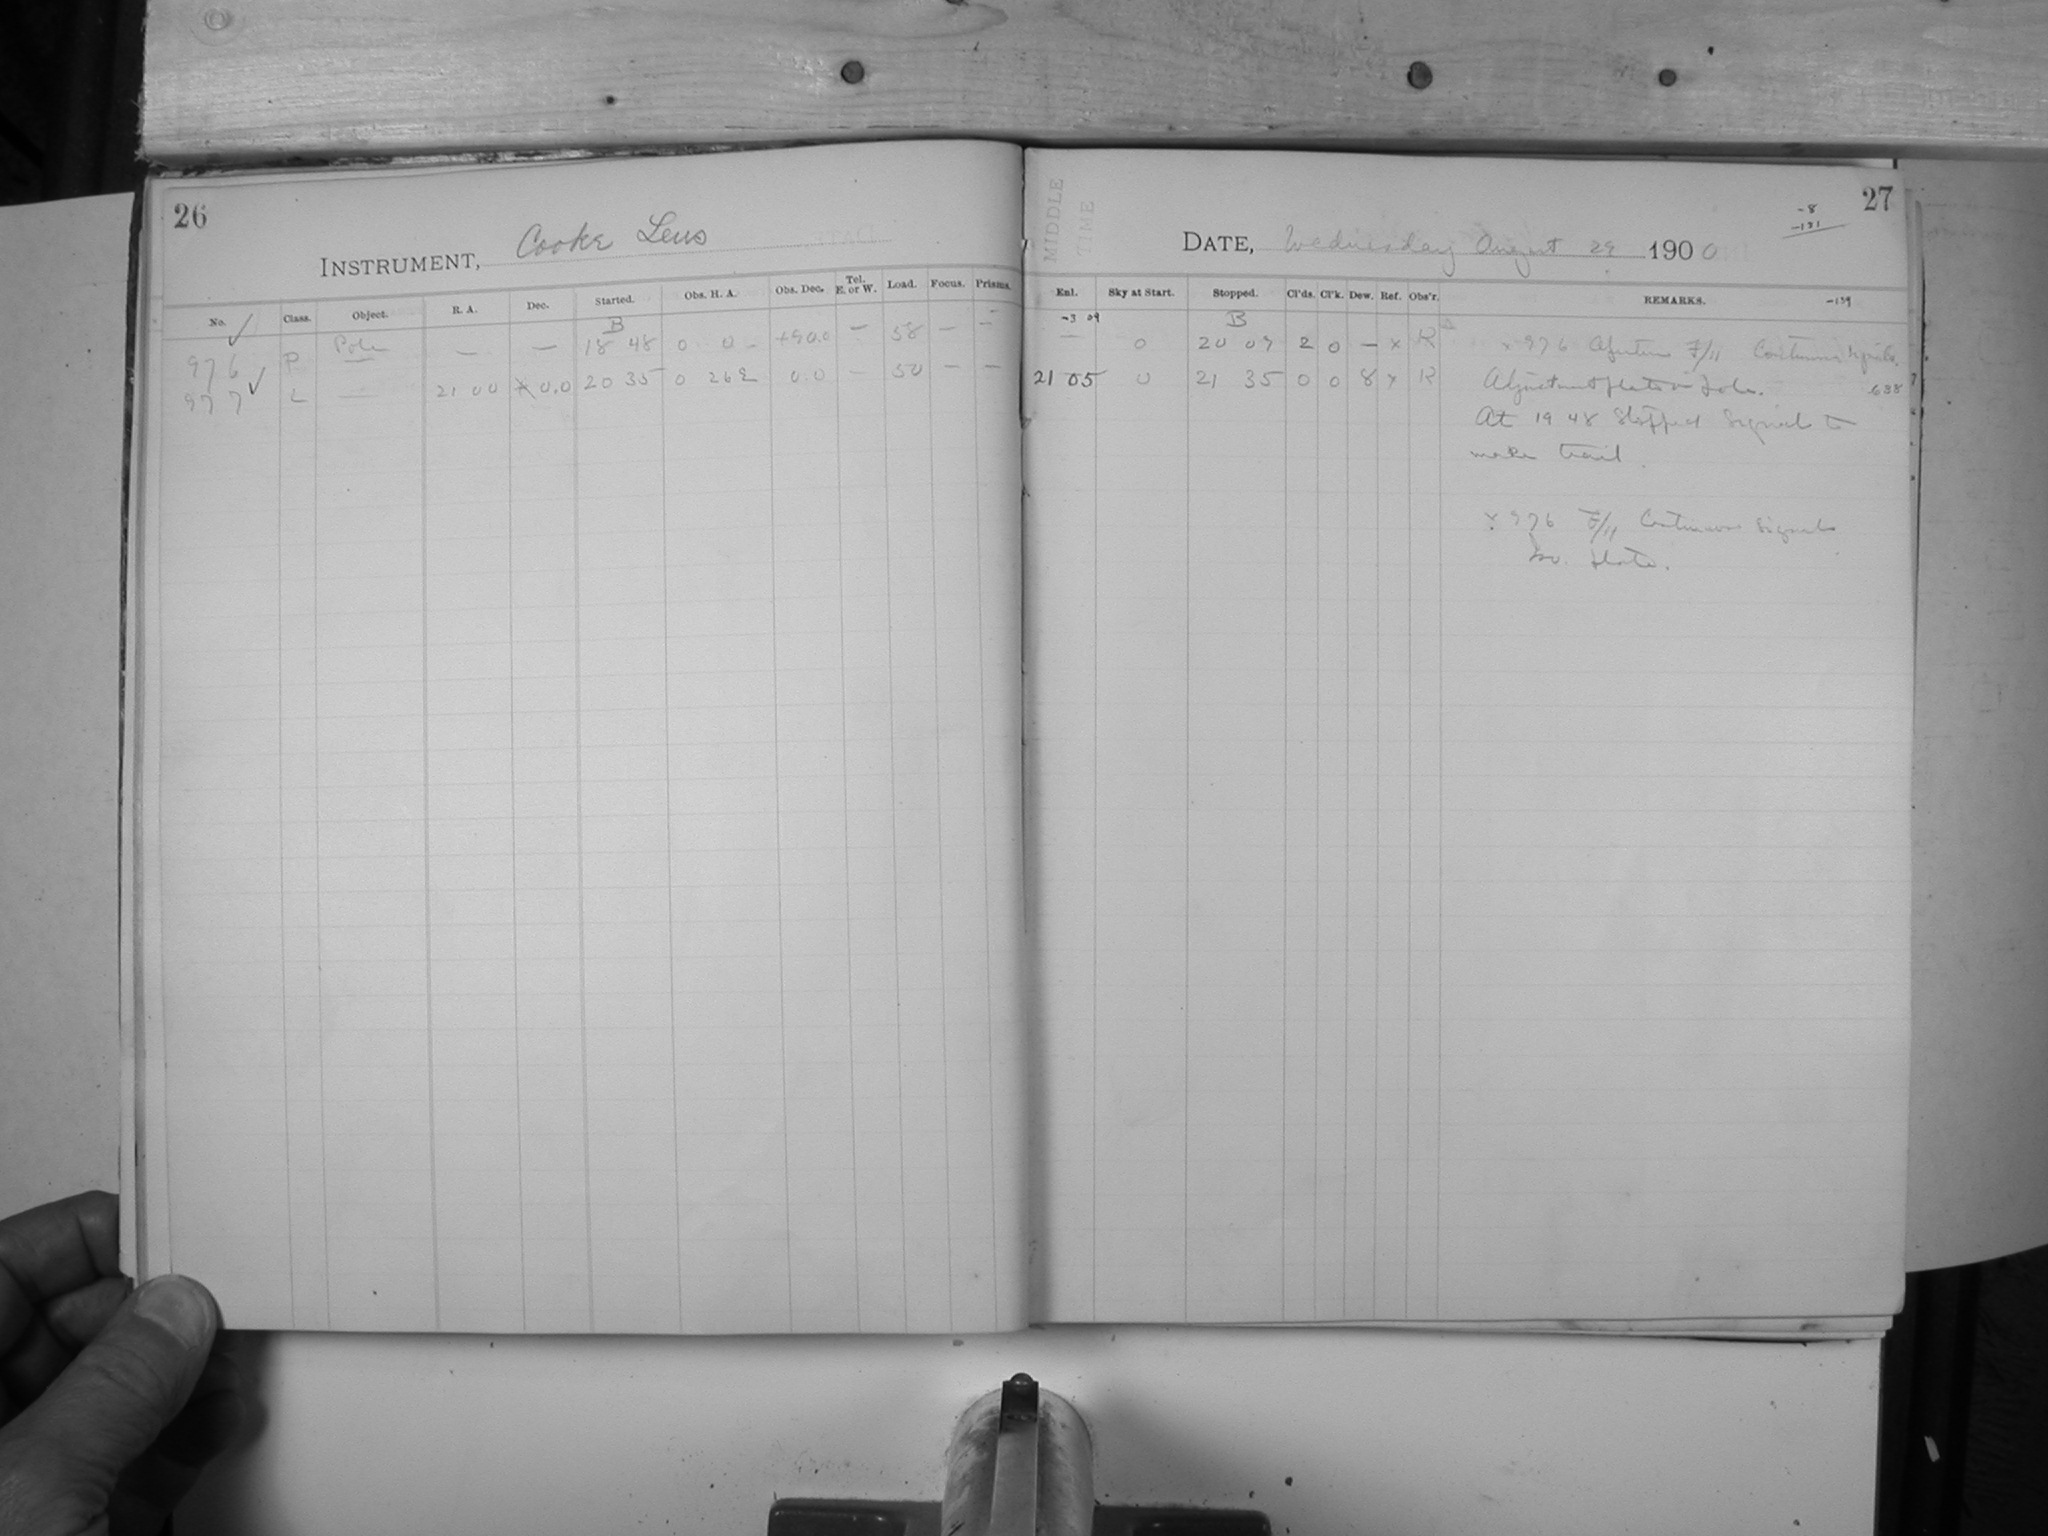 26
INSTRUMENT, Cooke Lens
No. Class. Object. R. A. Dec. Started. Obs. H. A. Obs. Dec. Tel. E. or W. Load. Focus. Prisms.
B
976 P Pole — — 18 48 0 0 - +90.0 — 58 — —
977 L — 21 00 0.0 20 35 0 26 E 0.0 — 50 — —
MIDDLE
TIME
27
-8
-131
DATE, Wednesday August 29 1900
Enl. Sky at Start. Stopped. Cl'ds. Cl'k. Dew. Ref. Obs'r. REMARKS. -139
-3 09 B
— 0 20 09 2 0 — x R x 976 Aperture F/11 Continuous Signals.
21 05 0 21 35 0 0 8 x R Adjustment plate on Pole. .688
At 19 48 Stopped Signals to
make trail.
x 976 F/11 Continuous Signals
plate.